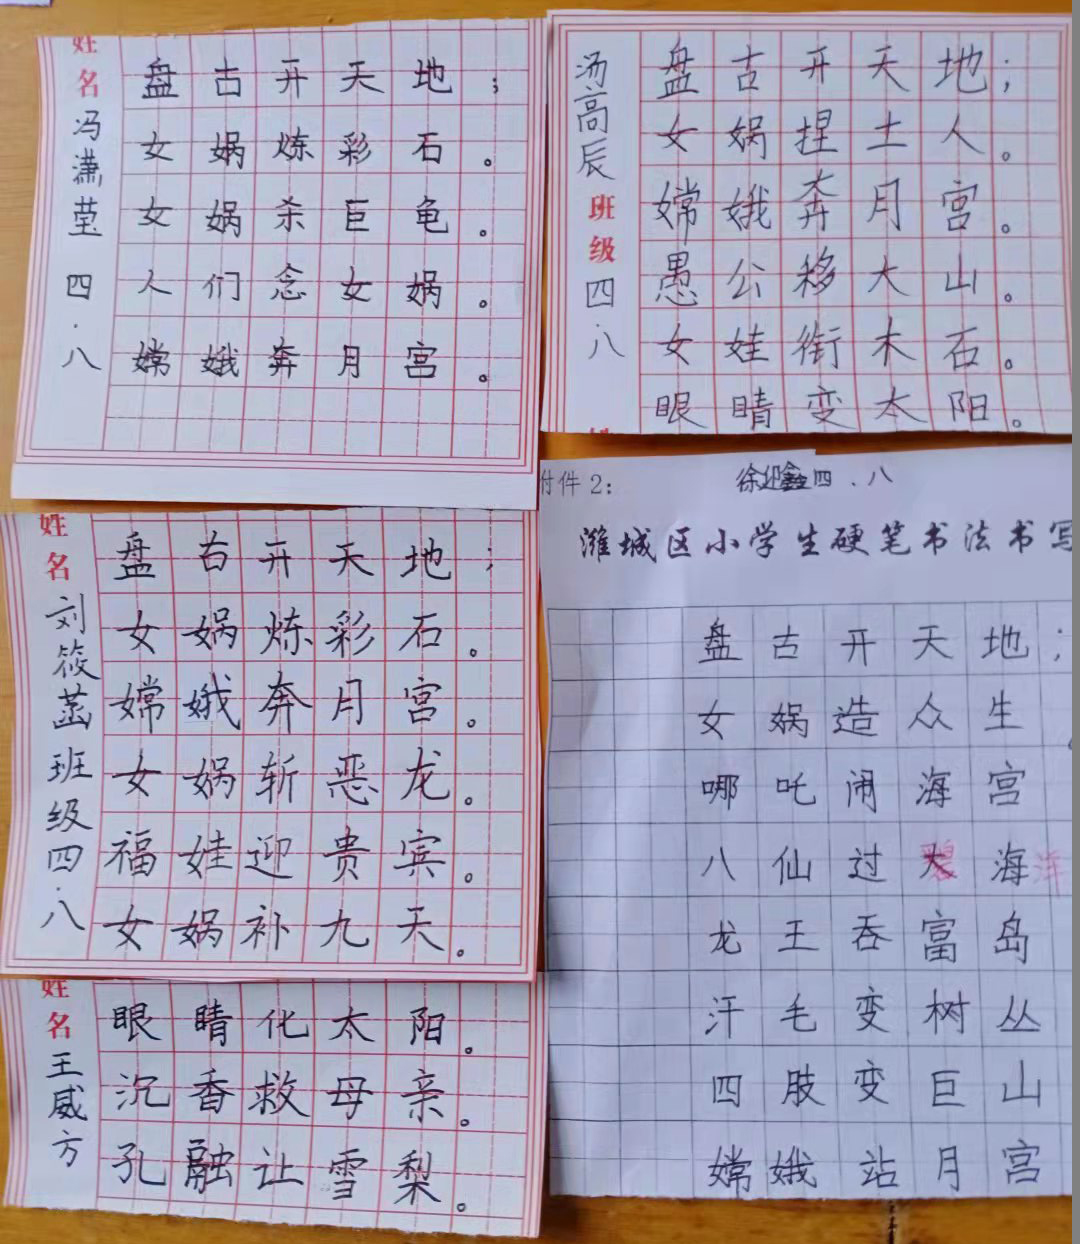 姓名 冯潇莹 四.八
盘古开天地；
女娲炼彩石。
女娲杀巨龟。
人们念女娲。
嫦娥奔月宫。
汤高辰 班级 四.八
盘古开天地；
女娲捏土人。
嫦娥奔月宫。
愚公移大山。
女娃衔木石。
眼睛变太阳。
姓名 刘筱菡 班级 四.八
盘古开天地；
女娲炼彩石。
嫦娥奔月宫。
女娲斩恶龙。
福娃迎贵宾。
女娲补九天。
姓名 王威方
眼睛化太阳。
沉香救母亲。
孔融让雪梨。
付件2：
徐迎鑫四.八
潍城区小学生硬笔书法书写
盘古开天地；
女娲造众生
哪吒闹海宫
八仙过海洋
龙王吞富岛
汗毛变树丛
四肢变巨山
嫦娥站月宫